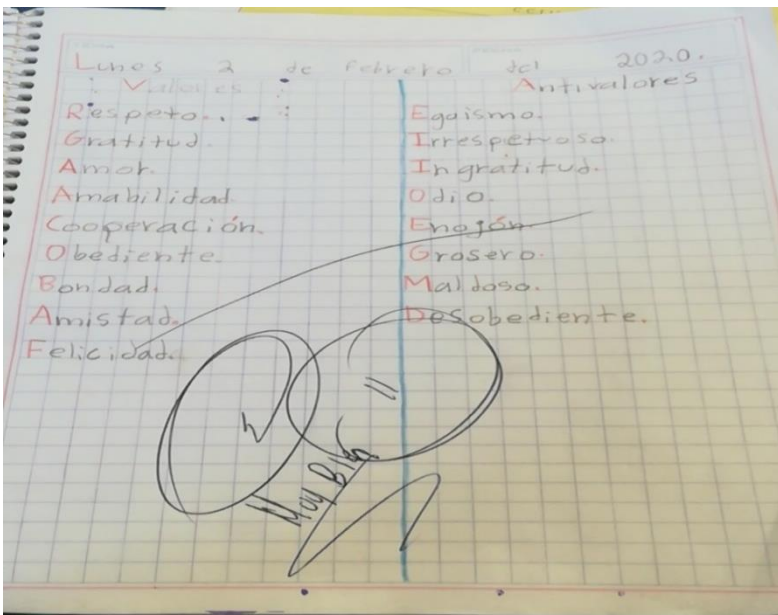 Lunes 2 de Febrero del 2020.
Valores
Respeto.
Gratitud.
Amor.
Amabilidad.
Cooperación.
Obediente.
Bondad.
Amistad.
Felicidad.
Antivalores
Egoismo.
Irrespetuoso.
Ingratitud.
Odio.
Enojón.
Grosero.
Maldoso.
Desobediente.
Muy Bien